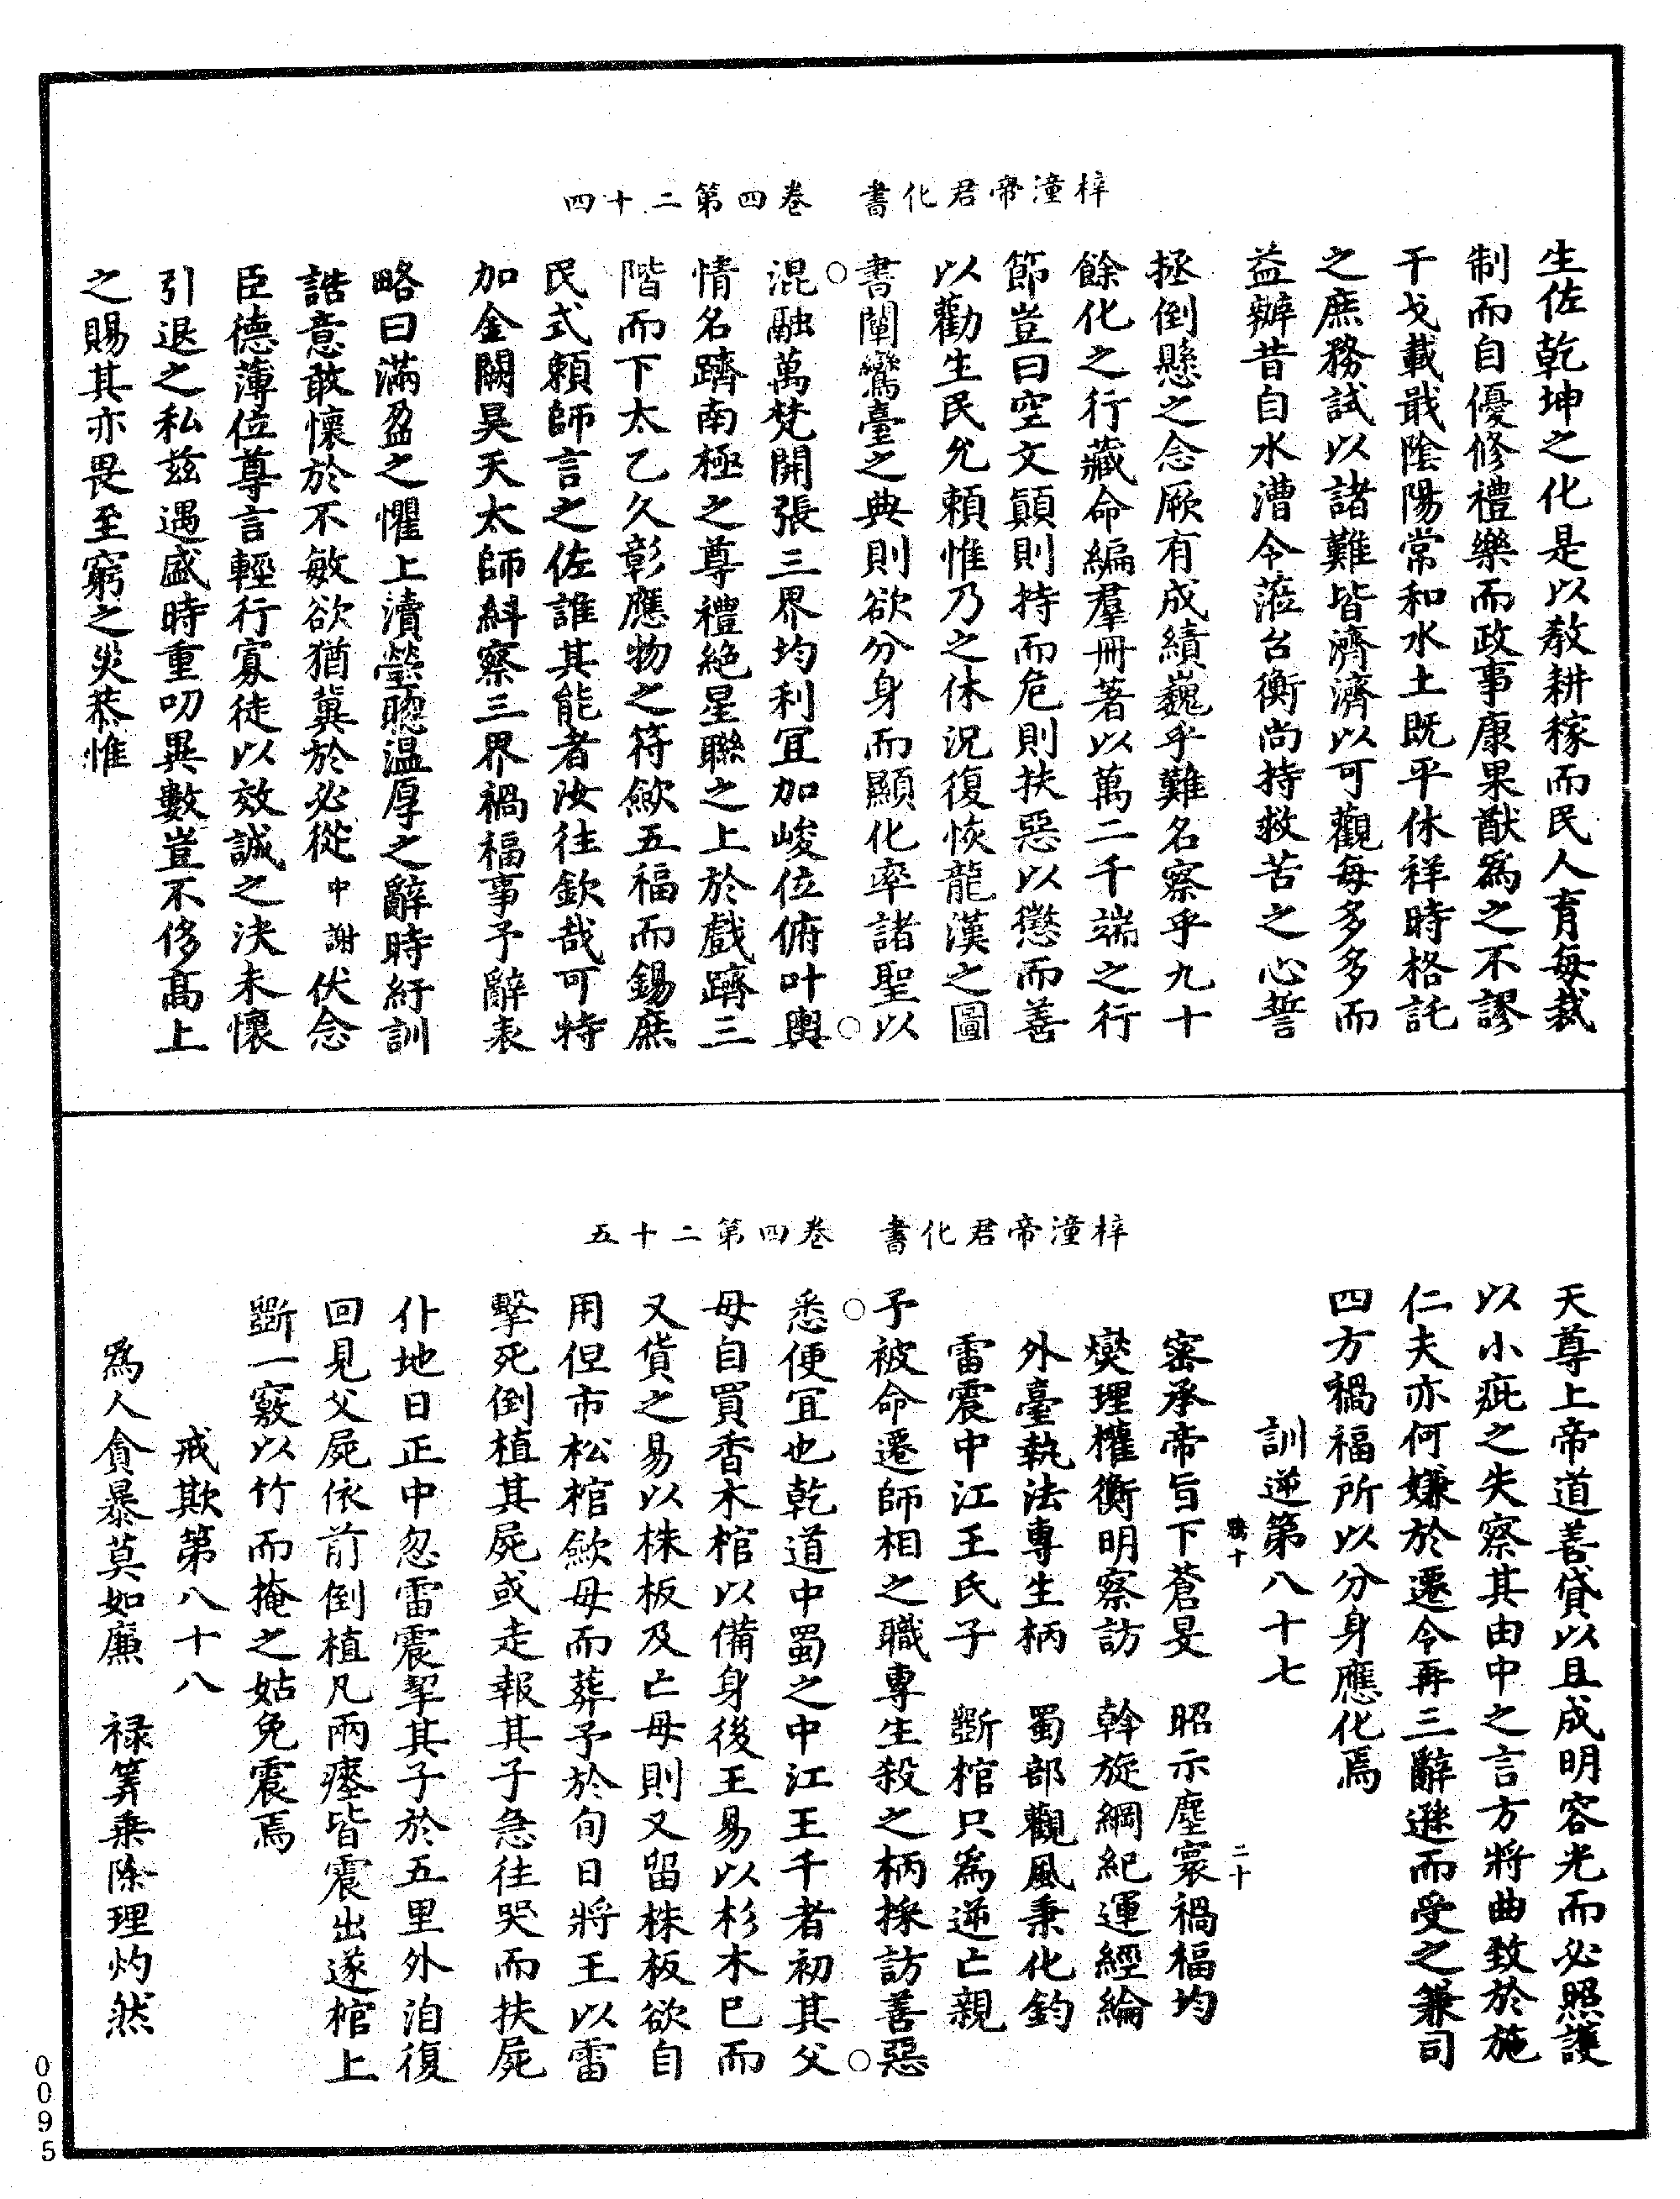 梓潼帝君化書　卷四第二十四
生佐乾坤之化是以教耕稼而民人育每裁
制而自優修禮樂而政事康果猷爲之不謬
干戈載戢陰陽常和水土既平休祥時格託
之庶務試以諸難皆濟濟以可觀每多多而
益辦昔自水漕令蒞台衡尚持救苦之心誓
拯倒懸之念厥有成績巍乎難名察乎九十
餘化之行藏命編羣冊著以萬二千端之行
節豈曰空文顛則持而危則扶惡以懲而善
以勸生民允賴惟乃之休況復恢龍漢之圖
書闡鸞臺之典則欲分身而顯化率諸聖以
混融萬梵開張三界均利宜加峻位俯叶輿
情名躋南極之尊禮絕星聯之上於戲躋三
階而下太乙久彰應物之符斂五福而錫庶
民式賴師言之佐誰其能者汝往欽哉可特
加金闕昊天太師糾察三界禍福事予辭表
略曰滿盈之懼上瀆瑩聰温厚之辭時紆訓
誥意敢懷於不敏欲猶冀於必從中謝伏念
臣德薄位尊言輕行寡徒以效誠之決未懷
引退之私兹遇盛時重叨異數豈不侈高上
之賜其亦畏至窮之災恭惟
梓潼帝君化書　卷四第二十五
天尊上帝道善貸以且成明容光而必照護
以小疵之失察其由中之言方將曲致於施
仁夫亦何嫌於遷令再三辭遜而受之兼司
四方禍福所以分身應化焉
訓逆第八十七
二十
密承帝旨下蒼旻　昭示塵寰禍福均
爕理權衡明察訪　斡旋綱紀運經綸
外臺執法專生柄　蜀部觀風秉化鈞
雷震中江王氏子　斷棺只爲逆亡親
予被命遷師相之職專生殺之柄採訪善惡
悉便宜也乾道中蜀之中江王千者初其父
母自買香木棺以備身後王易以杉木已而
又貨之易以株板及亡母則又留株板欲自
用但市松棺斂母而葬予於旬日將王以雷
擊死倒植其屍或走報其子急往哭而扶屍
仆地日正中忽雷震挈其子於五里外洎復
回見父屍依前倒植凡兩瘞皆震出遂棺上
斷一竅以竹而掩之姑免震焉
戒欺第八十八
爲人貪暴莫如廉　禄筭乗除理灼然
0095